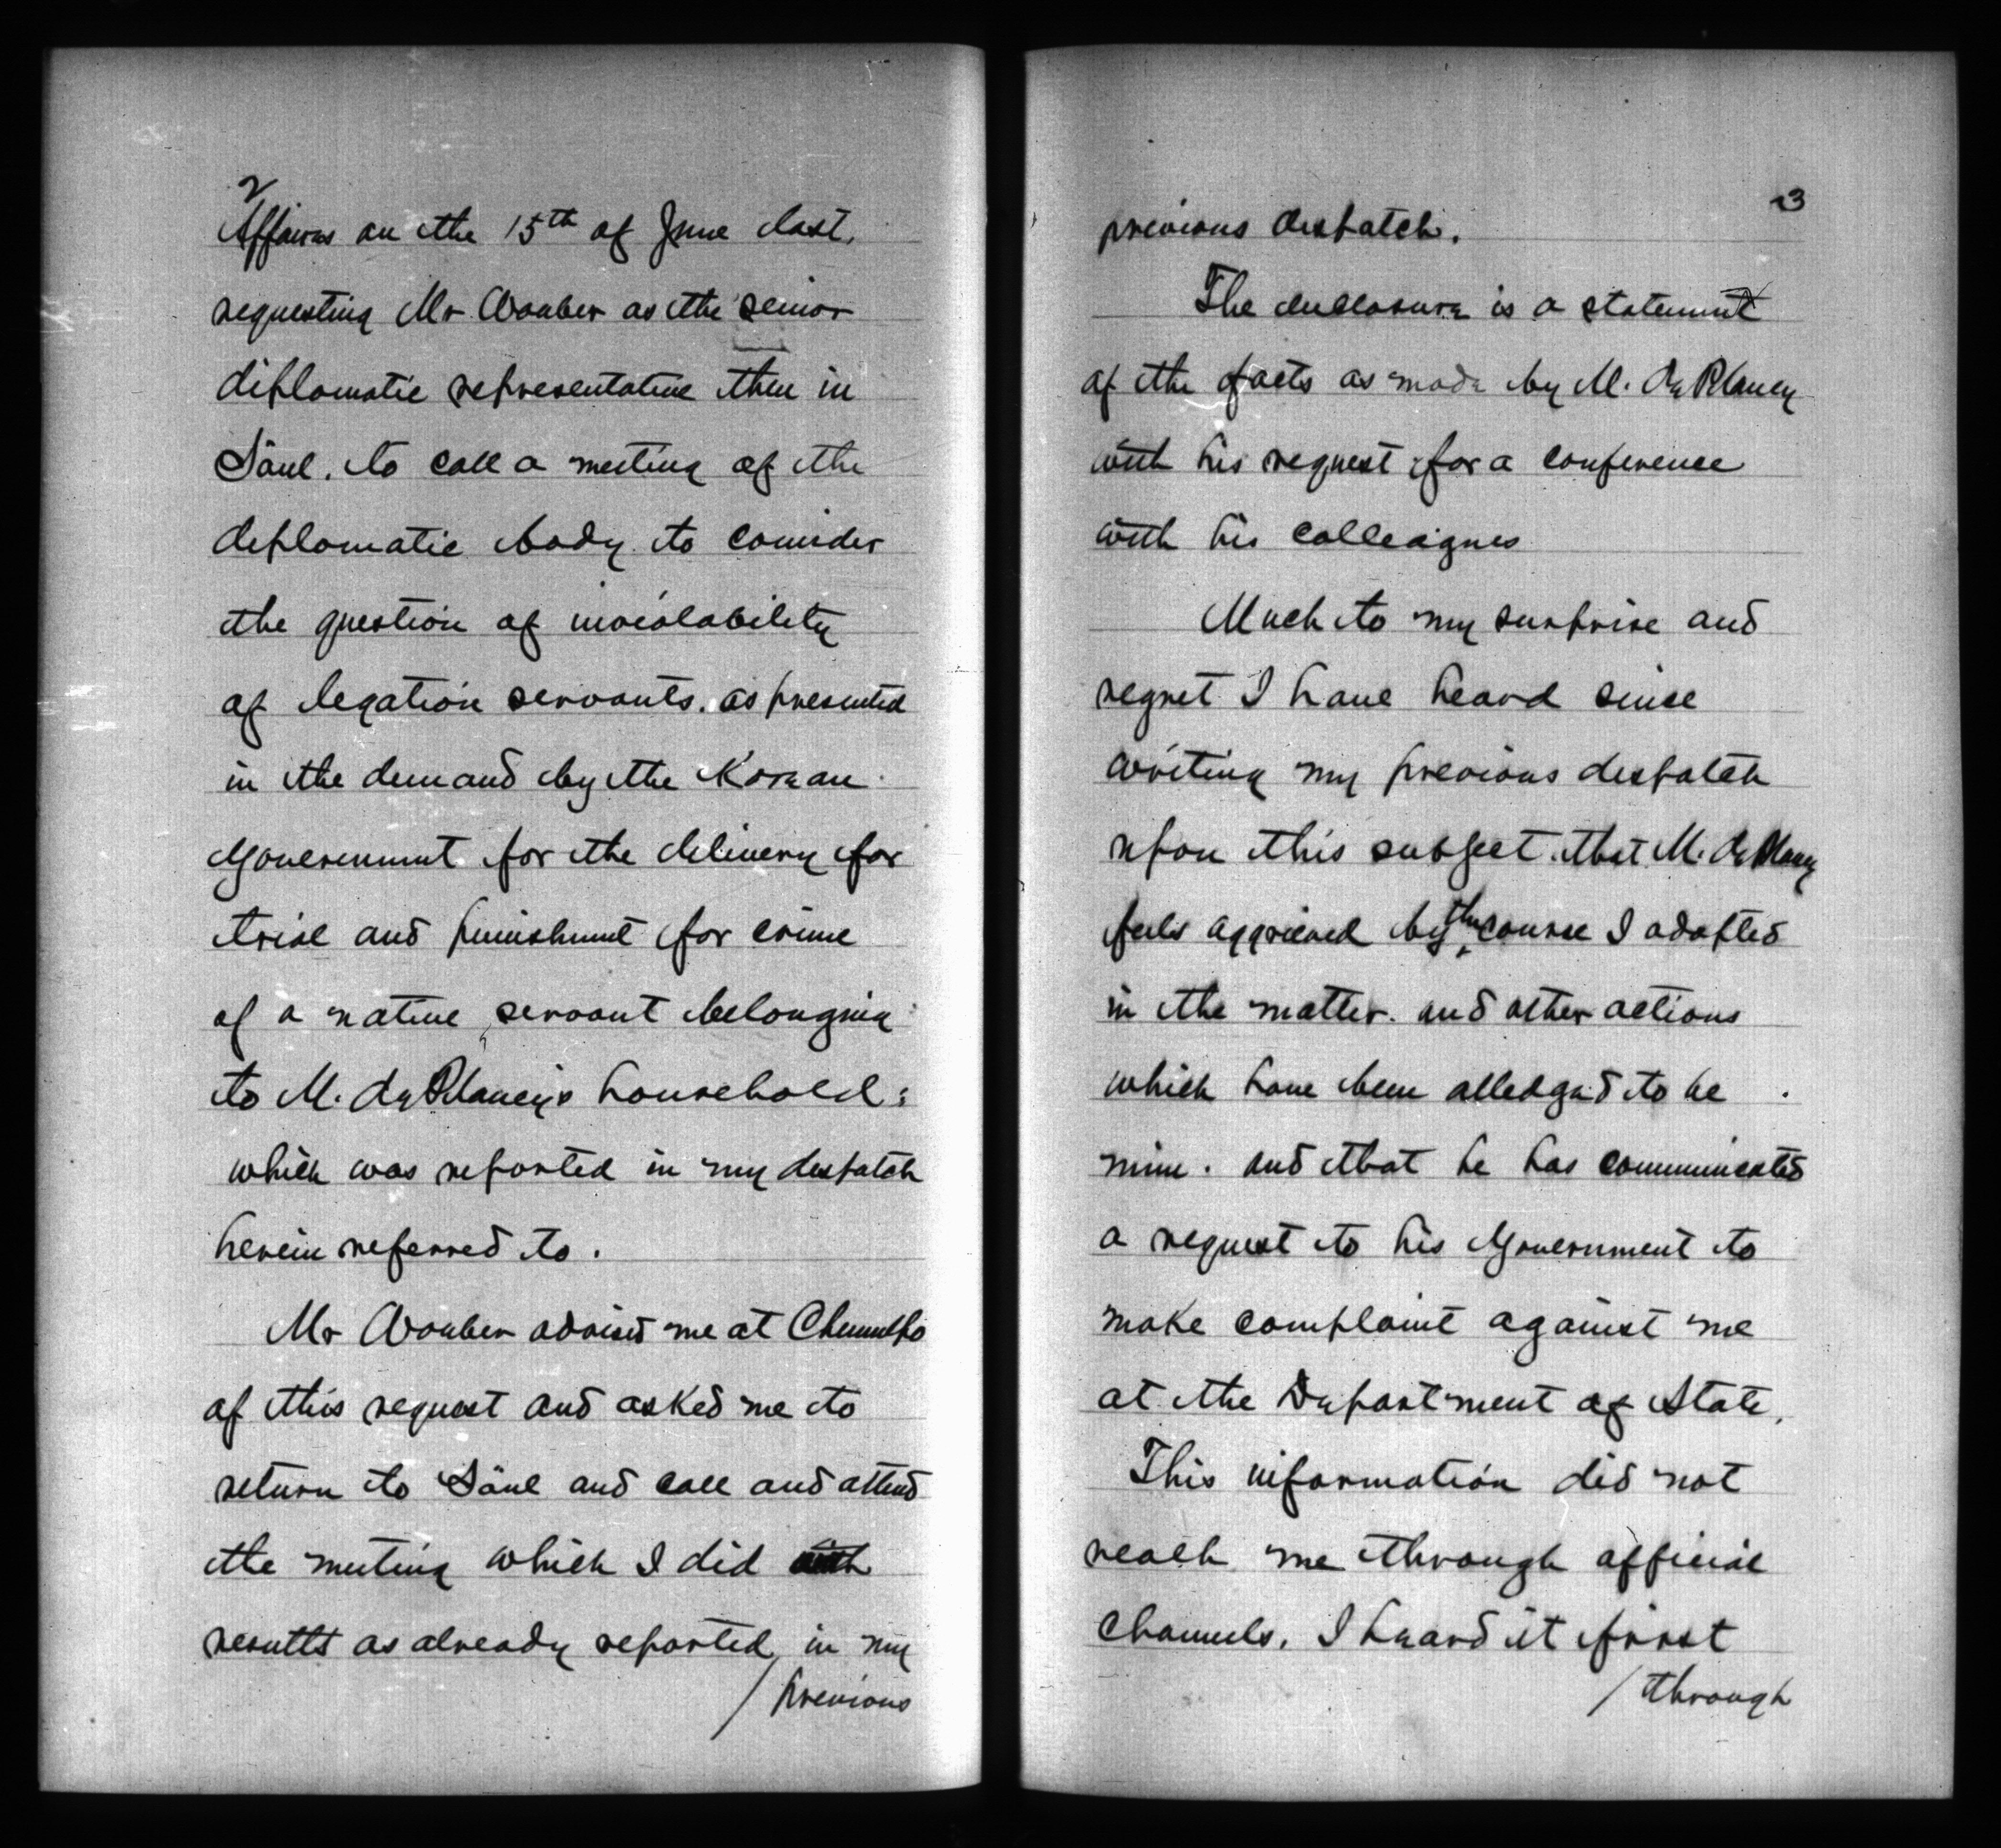 2
Affaires on the 15th of June last,
requesting Mr Waeber as the senior
diplomatic representative then in
Söul, to call a meeting of the
diplomatic body to consider
the question of inviolability
of legation servants, as presented
in the demand by the Korean
Government for the delivery for
trial and punishment for crime
of a native servant belonging
to M. de Plancy's household;
which was reported in my despatch
herein referred to.
Mr Waeber advised me at Chemulpo
of this request and asked me to
return to Söul and call and attend
the meeting which I did with
results as already reported in my
/previous
3
previous despatch.
The enclosure is a statement
of the facts as made by M. de Plancy
with his request for a conference
with his colleagues
Much to my surprise and
regret I have heard since
writing my previous despatch
upon this subject that M. de Plancy
feels aggrieved by the course I adopted
in the matter, and other actions
which have been alledged to be
mine. and that he has communicated
a request to his Government to
make complaint against me
at the Department of State.
This information did not
reach me through official
channels, I heard it first
/through